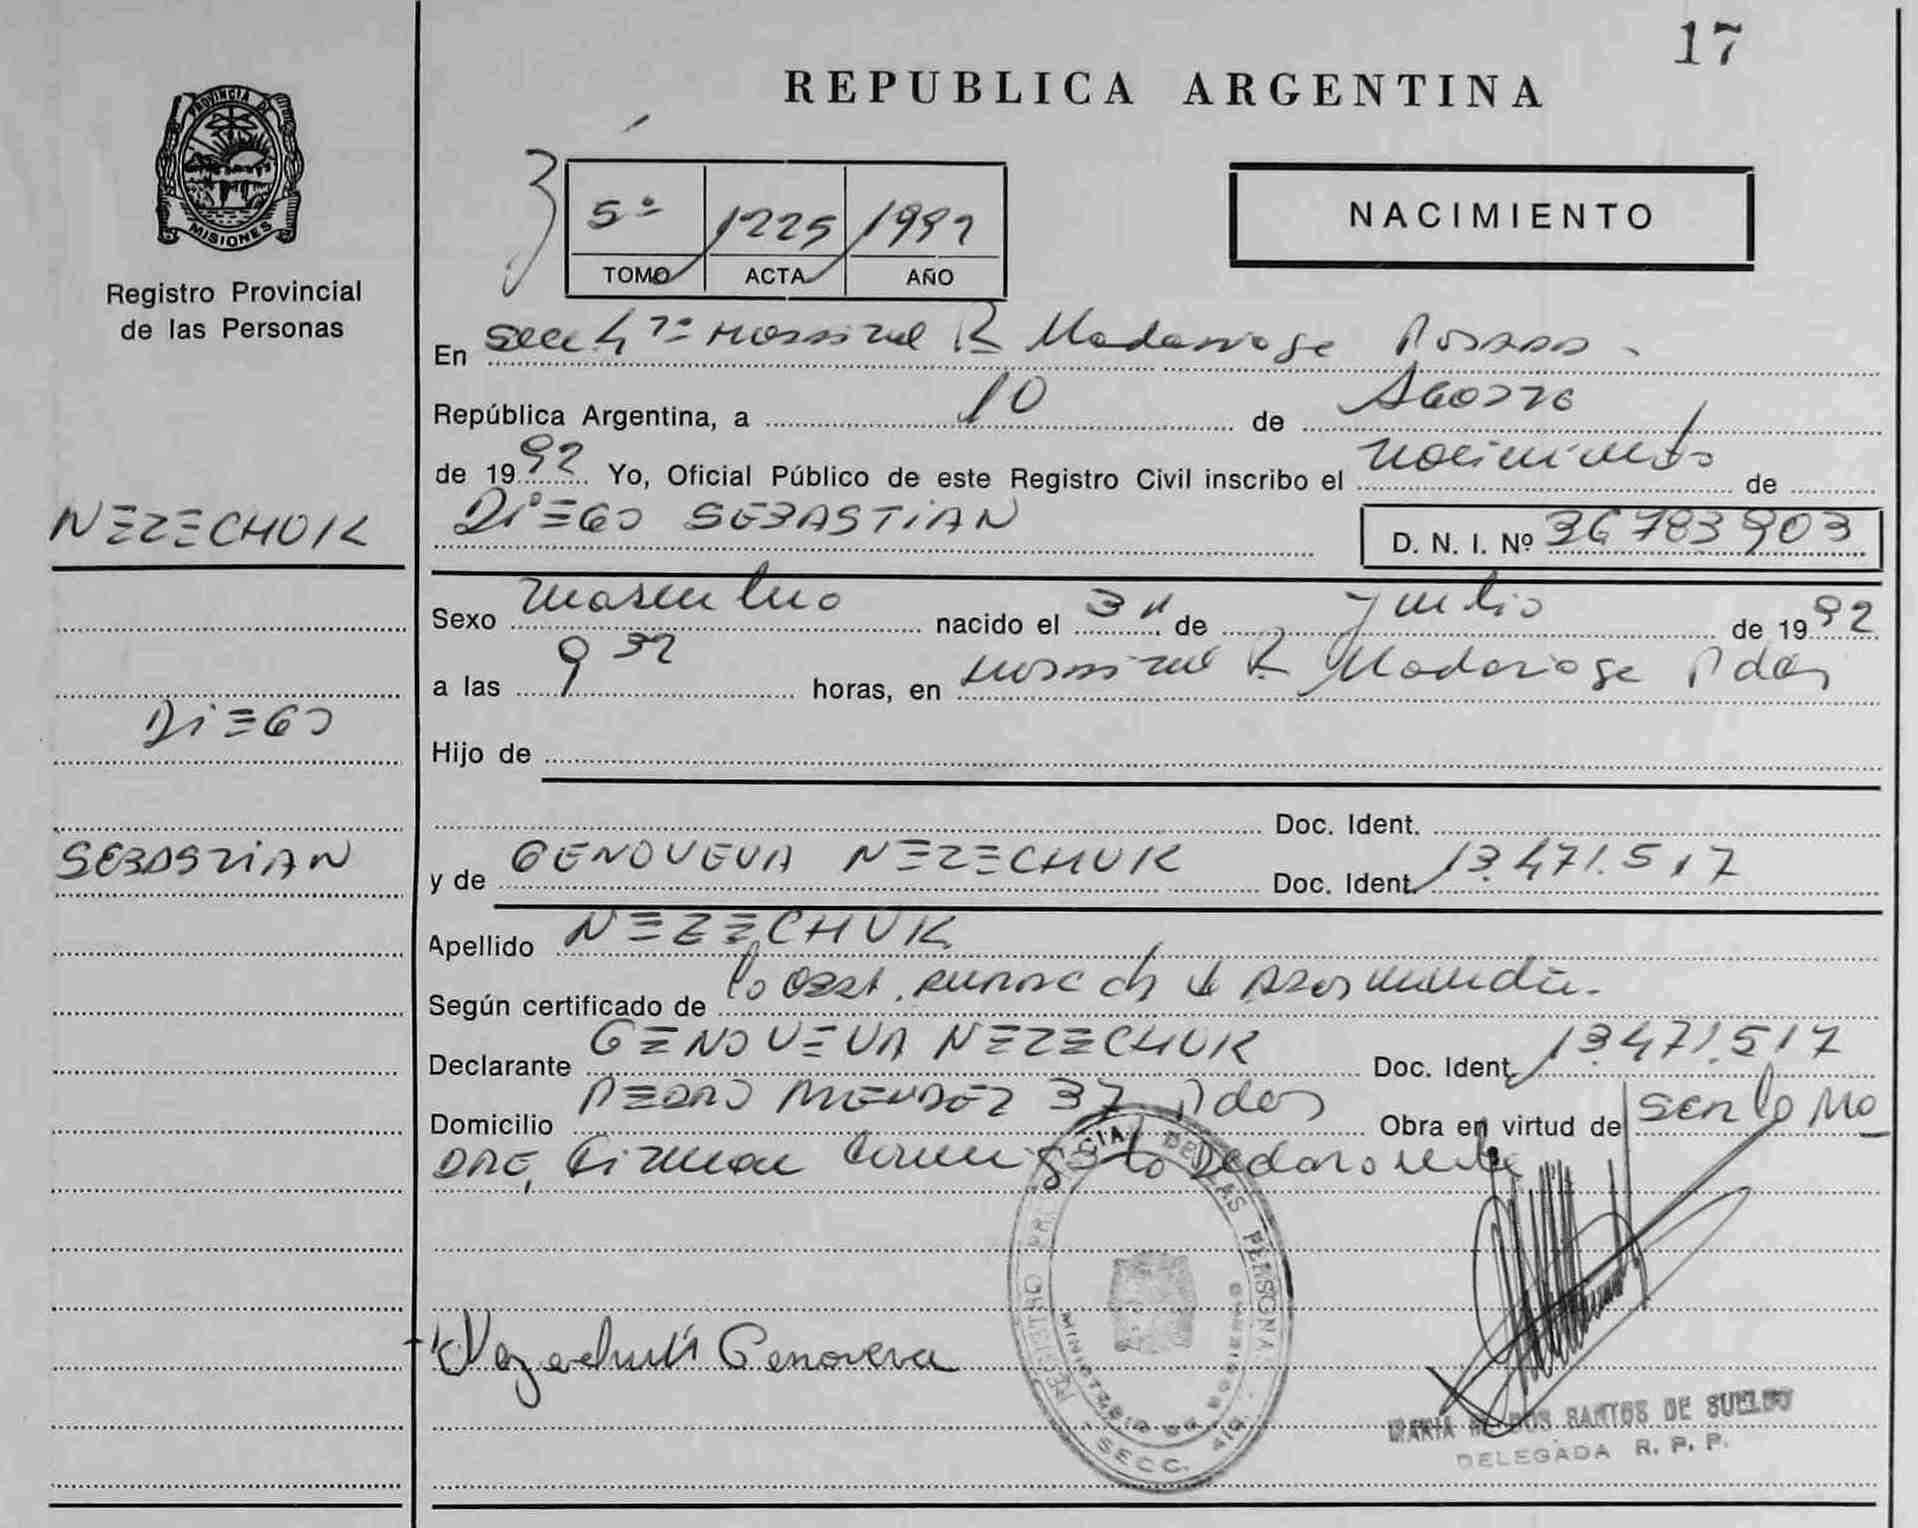 17
REPUBLICA ARGENTINA
PROVINCIA DE
MISIONES
Registro Provincial
de las Personas
5º 1225 1992
TOMO ACTA AÑO
NACIMIENTO
En Secc 4ª Hospital R Madariaga Posadas
República Argentina, a 10 de Agosto
de 1992 Yo, Oficial Público de este Registro Civil inscribo el nacimiento de
NEZECHUK
DIEGO SEBASTIAN D. N. I. Nº 36783903
Sexo masculino nacido el de Julio de 1992
a las 9 32 horas, en Hospital R. Madariaga Pdas
DIEGO
Hijo de
Doc. Ident.
SEBASTIAN
y de GENOVEVA NEZECHUK Doc. Ident. 13.471.517
Apellido NEZECHUK
Según certificado de la Obst.
Declarante GENOVEVA NEZECHUK Doc. Ident. 13.471.517
Domicilio PEDRO MENDEZ 37 Pdas Obra en virtud de ser la MA
DRE, Firman conmigo la Declarante
REGISTRO PROVINCIAL DE LAS PERSONAS
MINISTERIO DE GOBIERNO
SECC.
Nezechuk Genoveva
MARIA DOS SANTOS DE SUELDO
DELEGADA R. P. P.